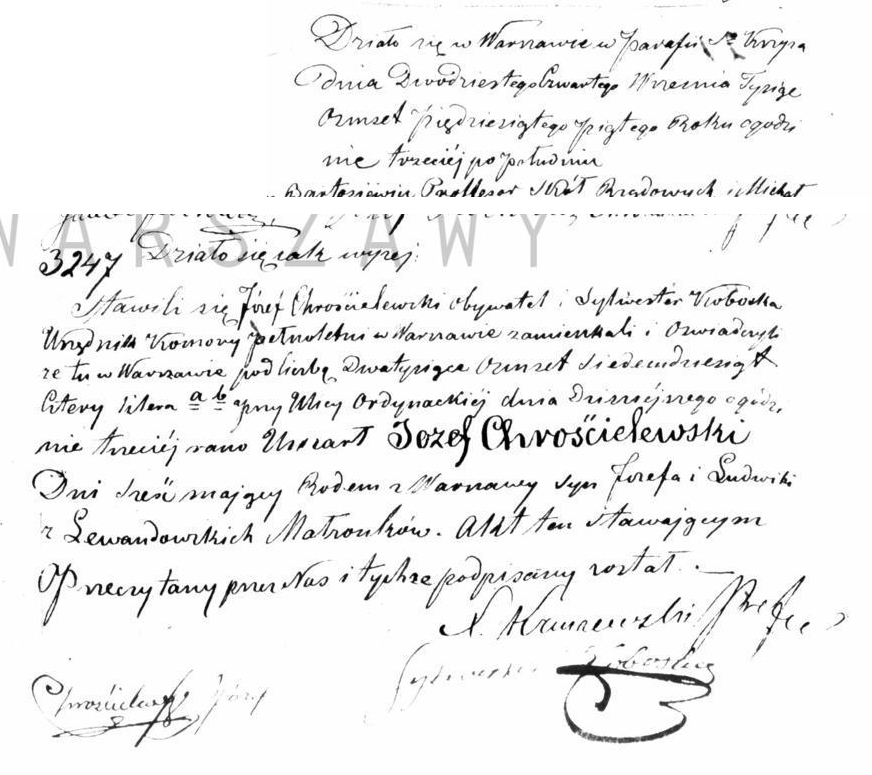 Działo się w Warszawie w Parafii Sgo Krzyża
dnia Dwódziestego Czwartego Wrzesnia Tysiąc
Ozmset Pięćdziesiątego Piątego Roku o godzi
nie trzeciéj po południu
Bartosiewicz Professor Szkół Rządowych i Michał
WARSZAWY
3247 Działo się iak wyżej
Stawili się Józéf Chróścielewski Obywatel i Sylwester Koboska
Urzędnik Komory pełnoletni w Warszawie zamieszkali i Oswiadczyli
że tu w Warszawie pod liczbą Dwatysiące Ozmset Siedemdziesiąt
Cztery litera a b przy Ulicy Ordynackiéj dnia Dzisiéjszego o godzi,
nie trzeciéj rano Umart Jozef Chrościelewski
Dni sześć mający Rodem z Warszawy syn Jozefa i Ludwiki
z Lewandowskich Małżonków. Akt ten stawającym
Przeczytany przez Nas i tychże podpisany został. —
Sylwester Koboska
Chróścielewski Józef